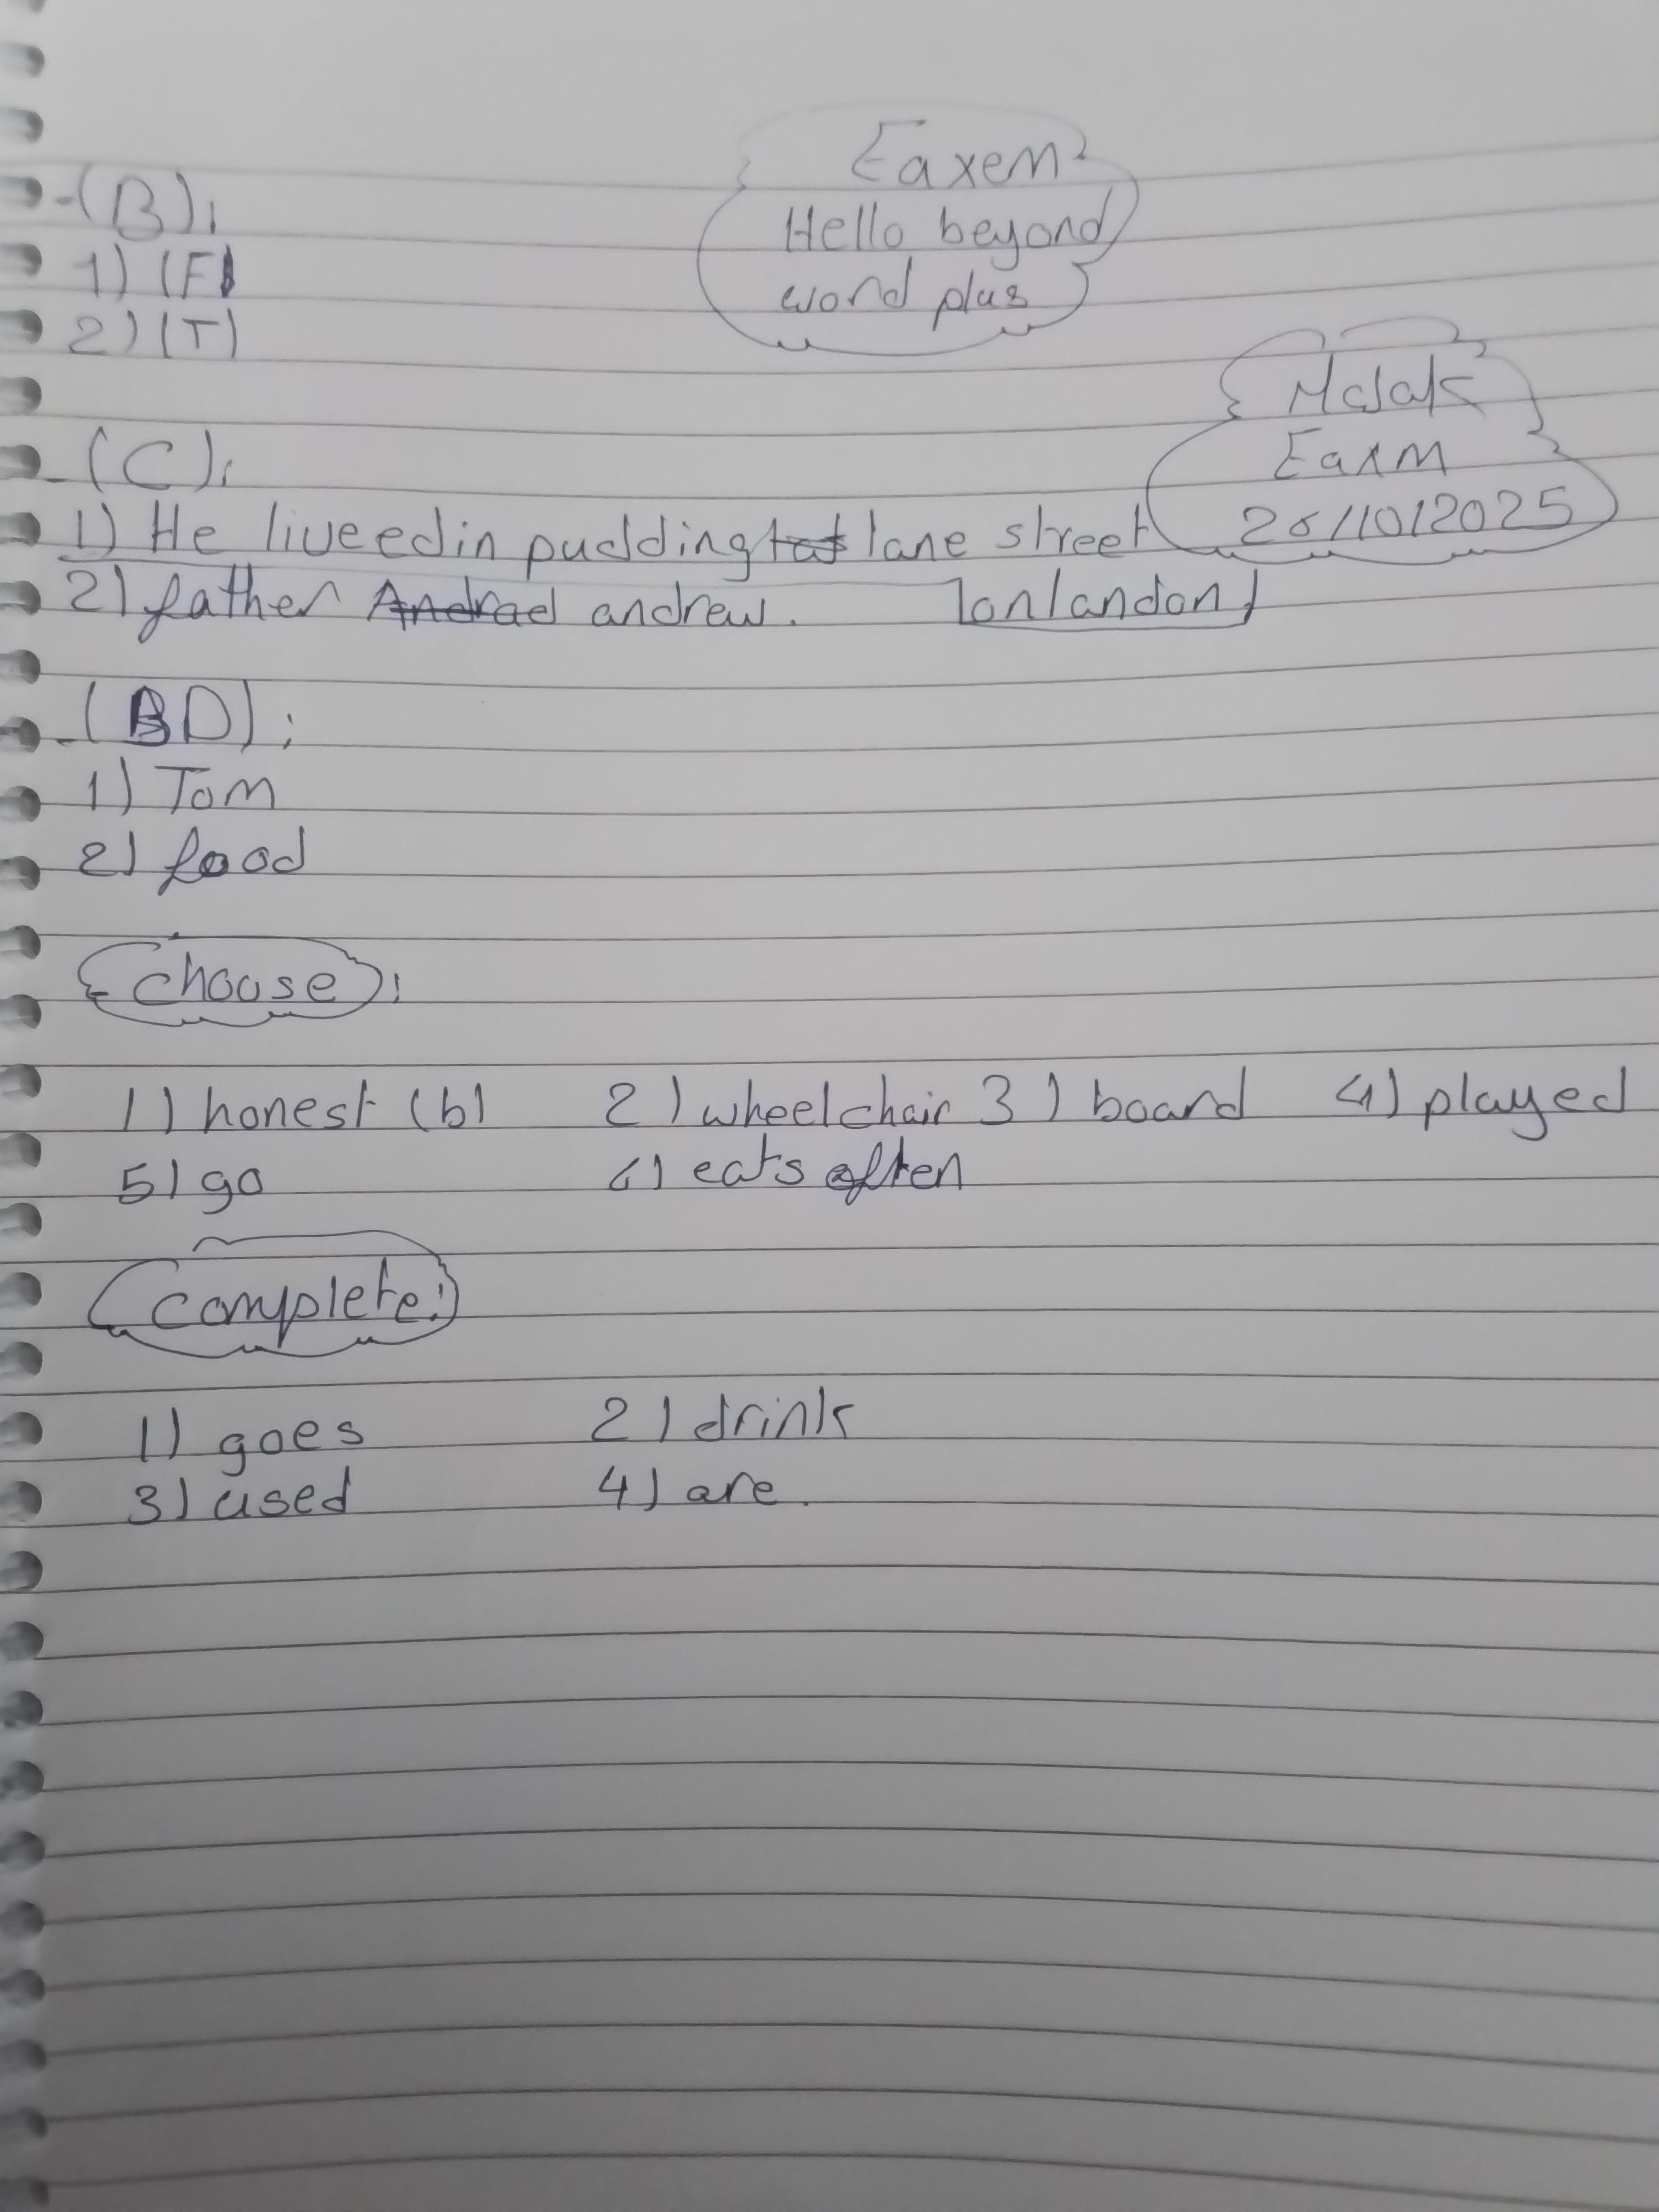 Eaxem
Hello beyond
word plus
-(B):
1) (F)
2) (T)
Malak
Eaxm
26/10/2025
-(C):
1) He liveedin pudding lane street
on landon
2) father andrew.
-(BD):
1) Tom
2) food
choose:
1) honest (b) 2) wheelchair 3) board 4) played
5) go 6) eats often
complete:
1) goes 2) drink
3) used 4) are.